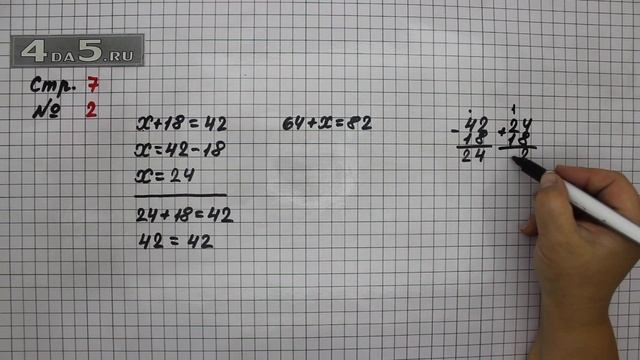 4DA5.RU
Стр. 7
№ 2
x+18=42
x=42-18
x=24
24+18=42
42=42
64+x=82
- 42
18
24
1
+ 24
18
2